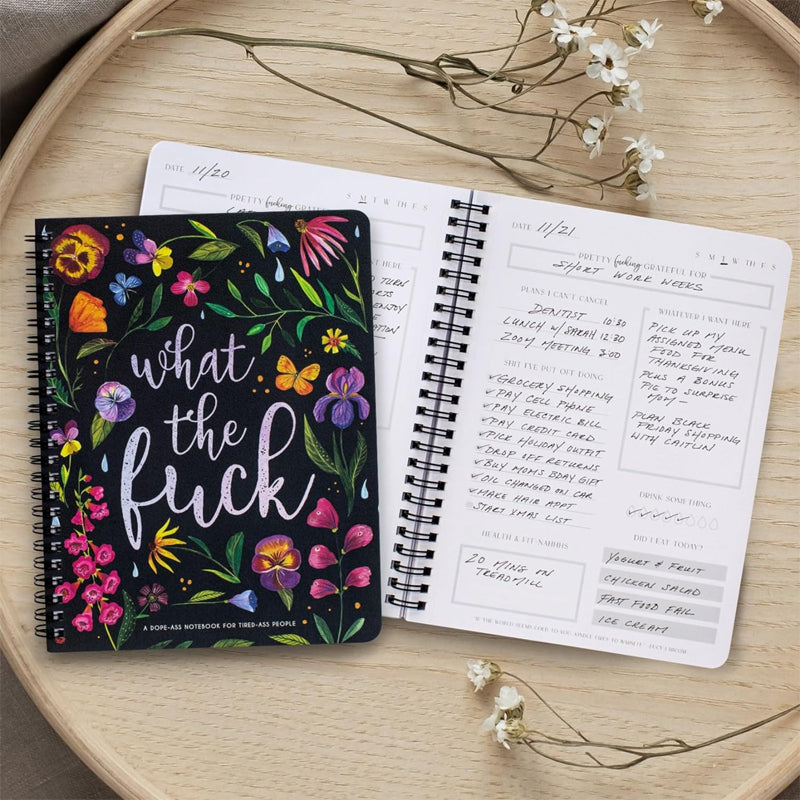 what
the
fuck
A DOPE-ASS NOTEBOOK FOR TIRED-ASS PEOPLE
DATE 11/20
S M T W TH F S
PRETTY fucking GRATEFUL FOR
HERE
TURN
ENJOY
DATE 11/21
S M T W TH F S
PRETTY fucking GRATEFUL FOR
SHORT WORK WEEKS
PLANS I CAN'T CANCEL
DENTIST 10:30
LUNCH W/ SARAH 12:30
ZOOM MEETING 3:00
SHIT I'VE PUT OFF DOING
✓GROCERY SHOPPING
✓PAY CELL PHONE
✓PAY ELECTRIC BILL
✓PAY CREDIT CARD
✓PICK HOLIDAY OUTFIT
✓DROP OFF RETURNS
✓BUY MOMS BDAY GIFT
✓OIL CHANGED ON CAR
✓MAKE HAIR APPT
START XMAS LIST
HEALTH & FIT NAHHHS
20 MINS ON
TREADMILL
WHATEVER I WANT HERE
PICK UP MY
ASSIGNED MENU
FOOD FOR
THANKSGIVING
PLUS A BONUS
PIE TO SURPRISE
MOM
PLAN BLACK
FRIDAY SHOPPING
WITH CAITLIN
DRINK SOMETHING
DID I EAT TODAY?
YOGURT & FRUIT
CHICKEN SALAD
FAST FOOD FAIL
ICE CREAM
IF THE WORLD SEEMS COLD TO YOU, KINDLE FIRES TO WARM IT. - LUCY LARCOM